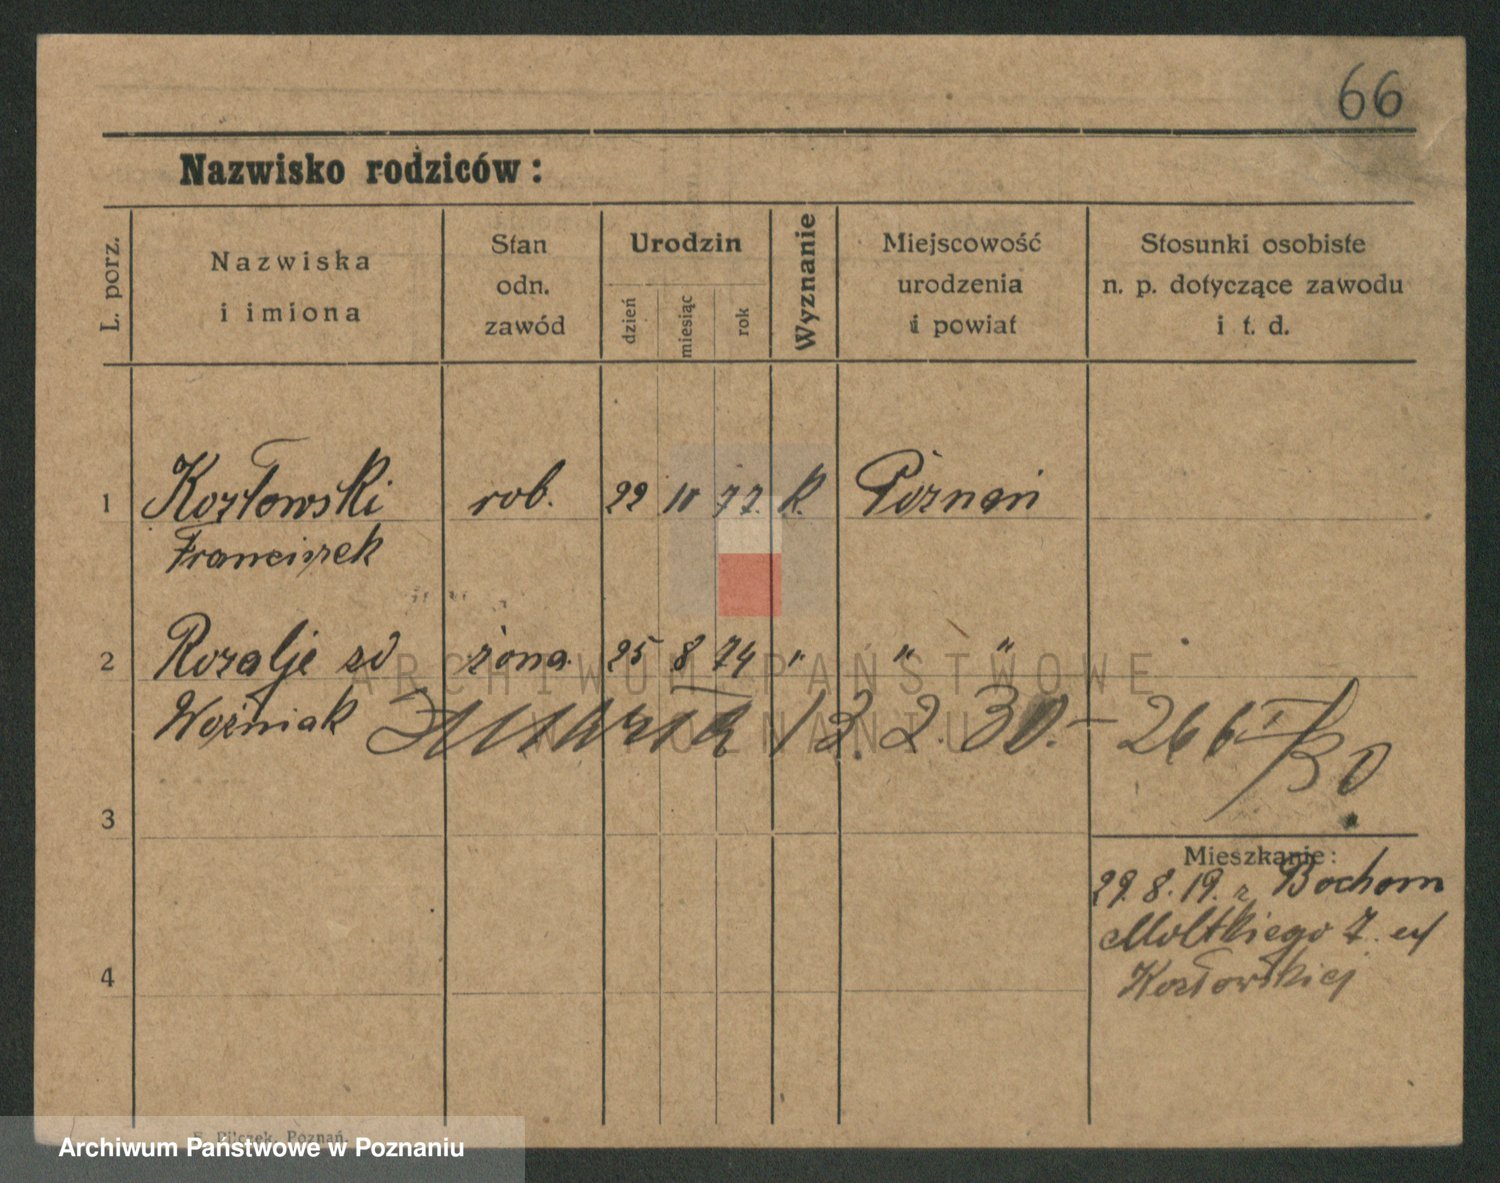 66
Nazwisko rodziców:
L. porz.
Nazwiska
i imiona
Stan
odn.
zawód
Urodzin
dzień
miesiąc
rok
Wyznanie
Miejscowość
urodzenia
i powiat
Stosunki osobiste
n. p. dotyczące zawodu
i t. d.
1 Kozłowski rob. 22 10 77. k. Poznań
Franciszek
2 Rozalje zd żona 25 8 74 " " "
ARCHIWUM PAŃSTWOWE
Woźniak 2. 30. — 266
W POZNANIU
3
Mieszkanie:
29. 8. 19. z Bochom
Moltkiego 7
Kozłowskiej
4
F. Pilczek, Poznań.
Archiwum Państwowe w Poznaniu